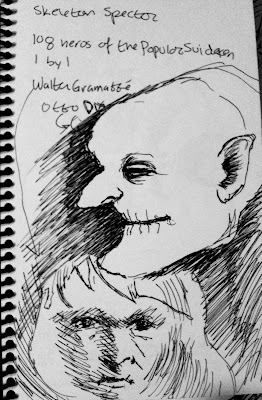 Skeleton Spector
108 heros of the Popular Suideen
1 by 1
Walter Gramatté
Otto Dix